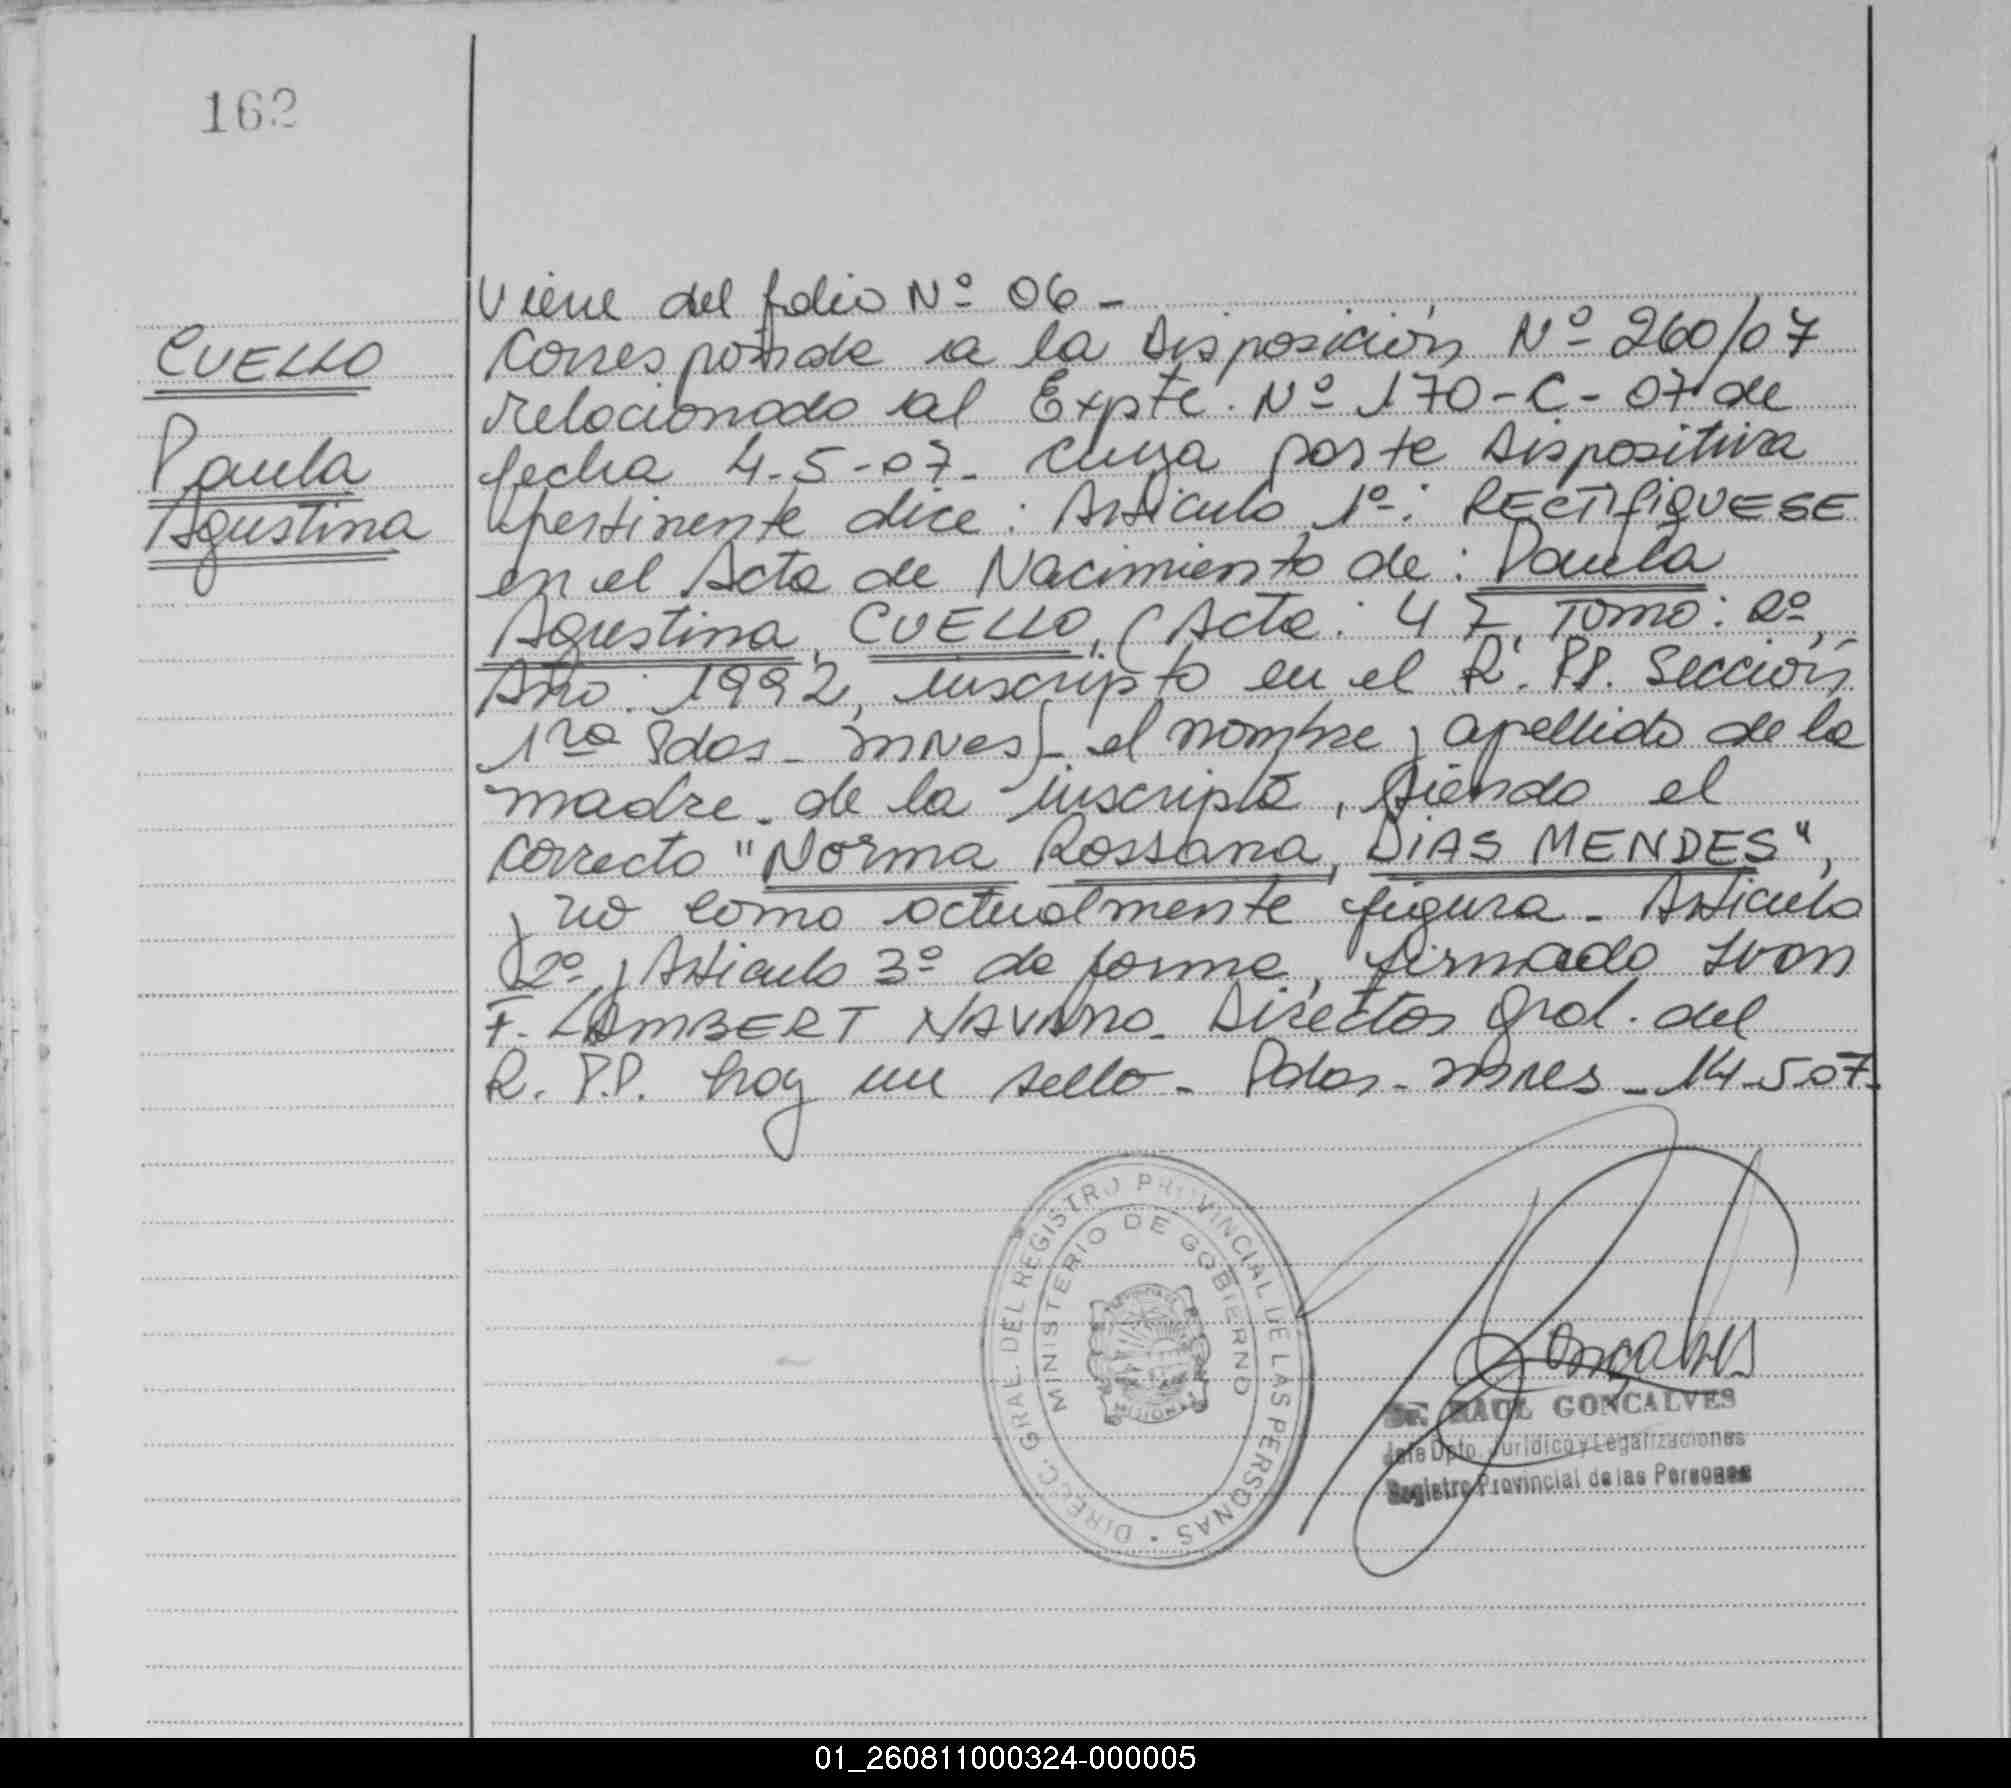 162
CUELLO
Paula
Agustina
Viene del folio Nº 06 -
Corresponde a la Disposición Nº 260/07
relacionado al Expte. Nº 170-C-07 de
fecha 4-5-07- cuya parte dispositiva
pertinente dice: Articulo 1º: RECTIFIQUESE
en el Acta de Nacimiento de: Paula
Agustina, CUELLO, (Acta: 47, Tomo: 2º,
Año: 1992, inscripto en el R. PP. Sección
1ra Pdas - mnes)- el nombre y apellido de la
madre de la inscripta, siendo el
correcto "Norma Rossana, DIAS MENDES",
y no como actualmente figura - Articulo
2º y Articulo 3º de forma, firmado Ivan
F. LAMBERT NAVARRO. Director Gral. del
R. P.P. hay un sello - Pdas - mnes - 14-5-07-
DIRECC. GRAL. DEL REGISTRO PROVINCIAL DE LAS PERSONAS
MINISTERIO DE GOBIERNO
MISIONES
Gonçalves
Dr. RAUL GONÇALVES
Jefe Dpto. Jurídico y Legalizaciones
Registro Provincial de las Personas
01_260811000324-000005